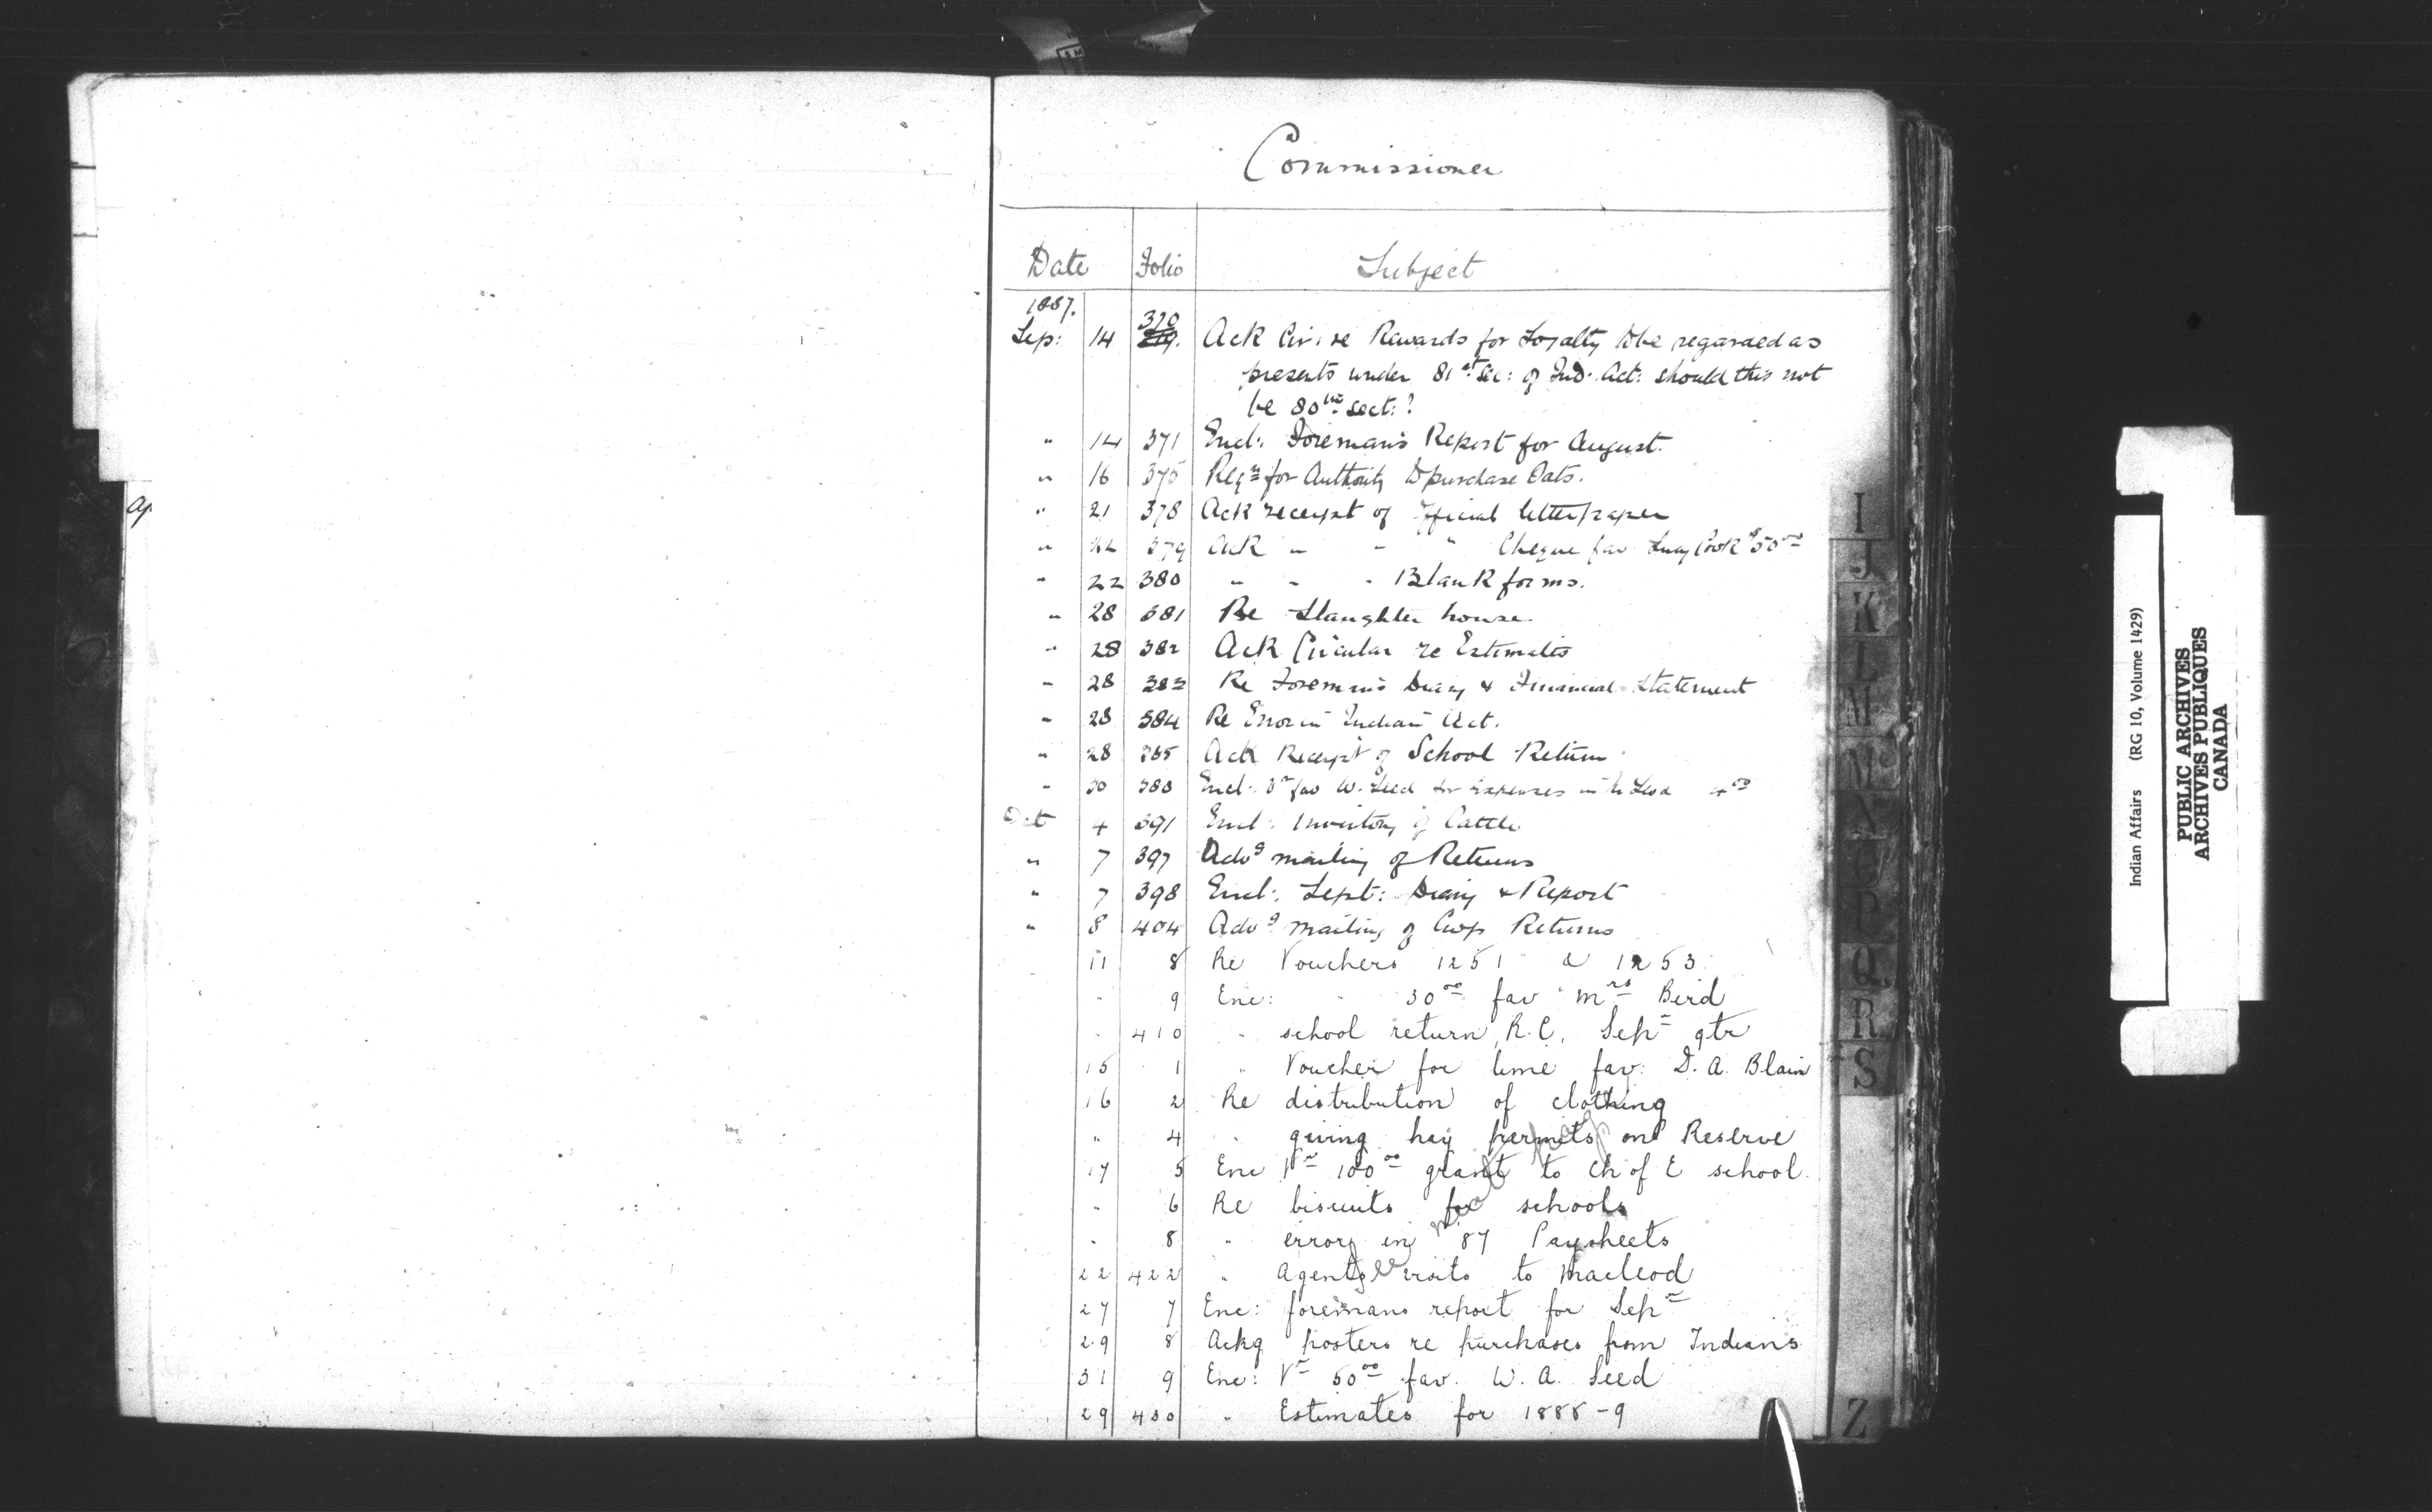 Commissioner
Date Folio Subject
1887.
Sep: 14 370 Ack Cir: re Rewards for Loyalty to be regarded as
presents under 81st Sec: of Ind. Act: should this not
be 80th sect:?
" 14 371 Encl: Foreman's Report for August.
" 16 375 Reqn for Authority to purchase Oats.
" 21 378 Ack receipt of official letterpaper
" 22 379 Ack " - " Cheque fav Lucy Cook $50.00
" 22 380 " - - Blank forms.
" 28 381 Re Slaughter house
" 28 382 Ack Circular re Estimates
" 28 383 Re Foreman's Diary & Financial Statement
" 28 384 Re Error in Indian Act.
" 28 385 Ack Receipt of School Return
" 30 388 Encl: Vr fav W. Seed for Expenses
Oct 4 391 Encl: Inventory of Cattle
" 7 397 Advg mailing of Returns
" 7 398 Encl: Sept: Diary & Report
" 8 404 Advg mailing of Crop Returns
11 8 Re Vouchers 1251 & 1253
" 9 Enc: " 30.00 fav Mrs Bird
" 410 " school return, R.C. Sepr qtr
15 1 " Voucher for lime fav: D. A. Blain
16 2 Re distribution of clothing
" 4 " giving hay permits on Reserve
17 5 Enc Vr 100.00 grant to Ch of E school
" 6 Re biscuits for schools
" 8 " errors in 87 Paysheets
22 422 " Agents visits to Macleod
27 7 Enc: foremans report for Sepr
29 8 Ackg posters re purchases from Indians
31 9 Enc: Vr 50.00 fav. W. A. Seed
29 430 " Estimates for 1888-9
I
J
K
L
M
Mc
N
O
P
Q
R
S
Z
Indian Affairs (RG 10, Volume 1429)
PUBLIC ARCHIVES
ARCHIVES PUBLIQUES
CANADA